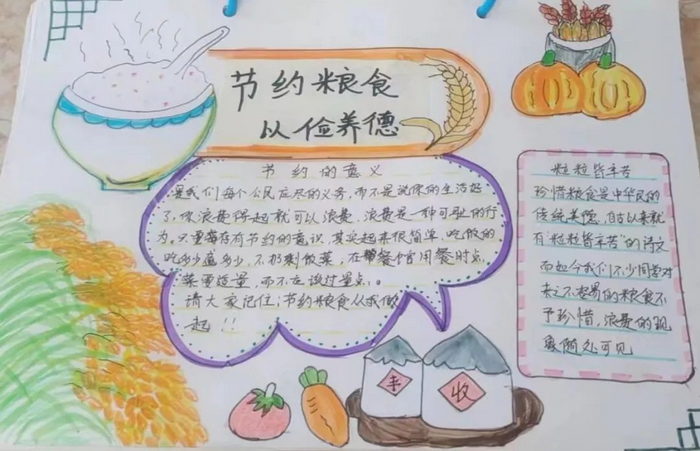 节约粮食
从俭养德
节约的意义
是我们每个公民应尽的义务,而不是说你的生活好
了,你浪费得起就可以浪费,浪费是一种可耻的行
为。只要存有节约的意识,其实起来很简单,吃饭时
吃多少盛多少,不扔剩饭菜,在餐馆用餐时点
菜要适量,而不应该过量点。
请大家记住:节约粮食从我做
起!!
粒粒皆辛苦
珍惜粮食是中华民的
传统美德,自古以来就
有"粒粒皆辛苦"的诗文
而如今我们不少同学对
来之不易的粮食不
予珍惜,浪费的现
象随处可见
丰 收